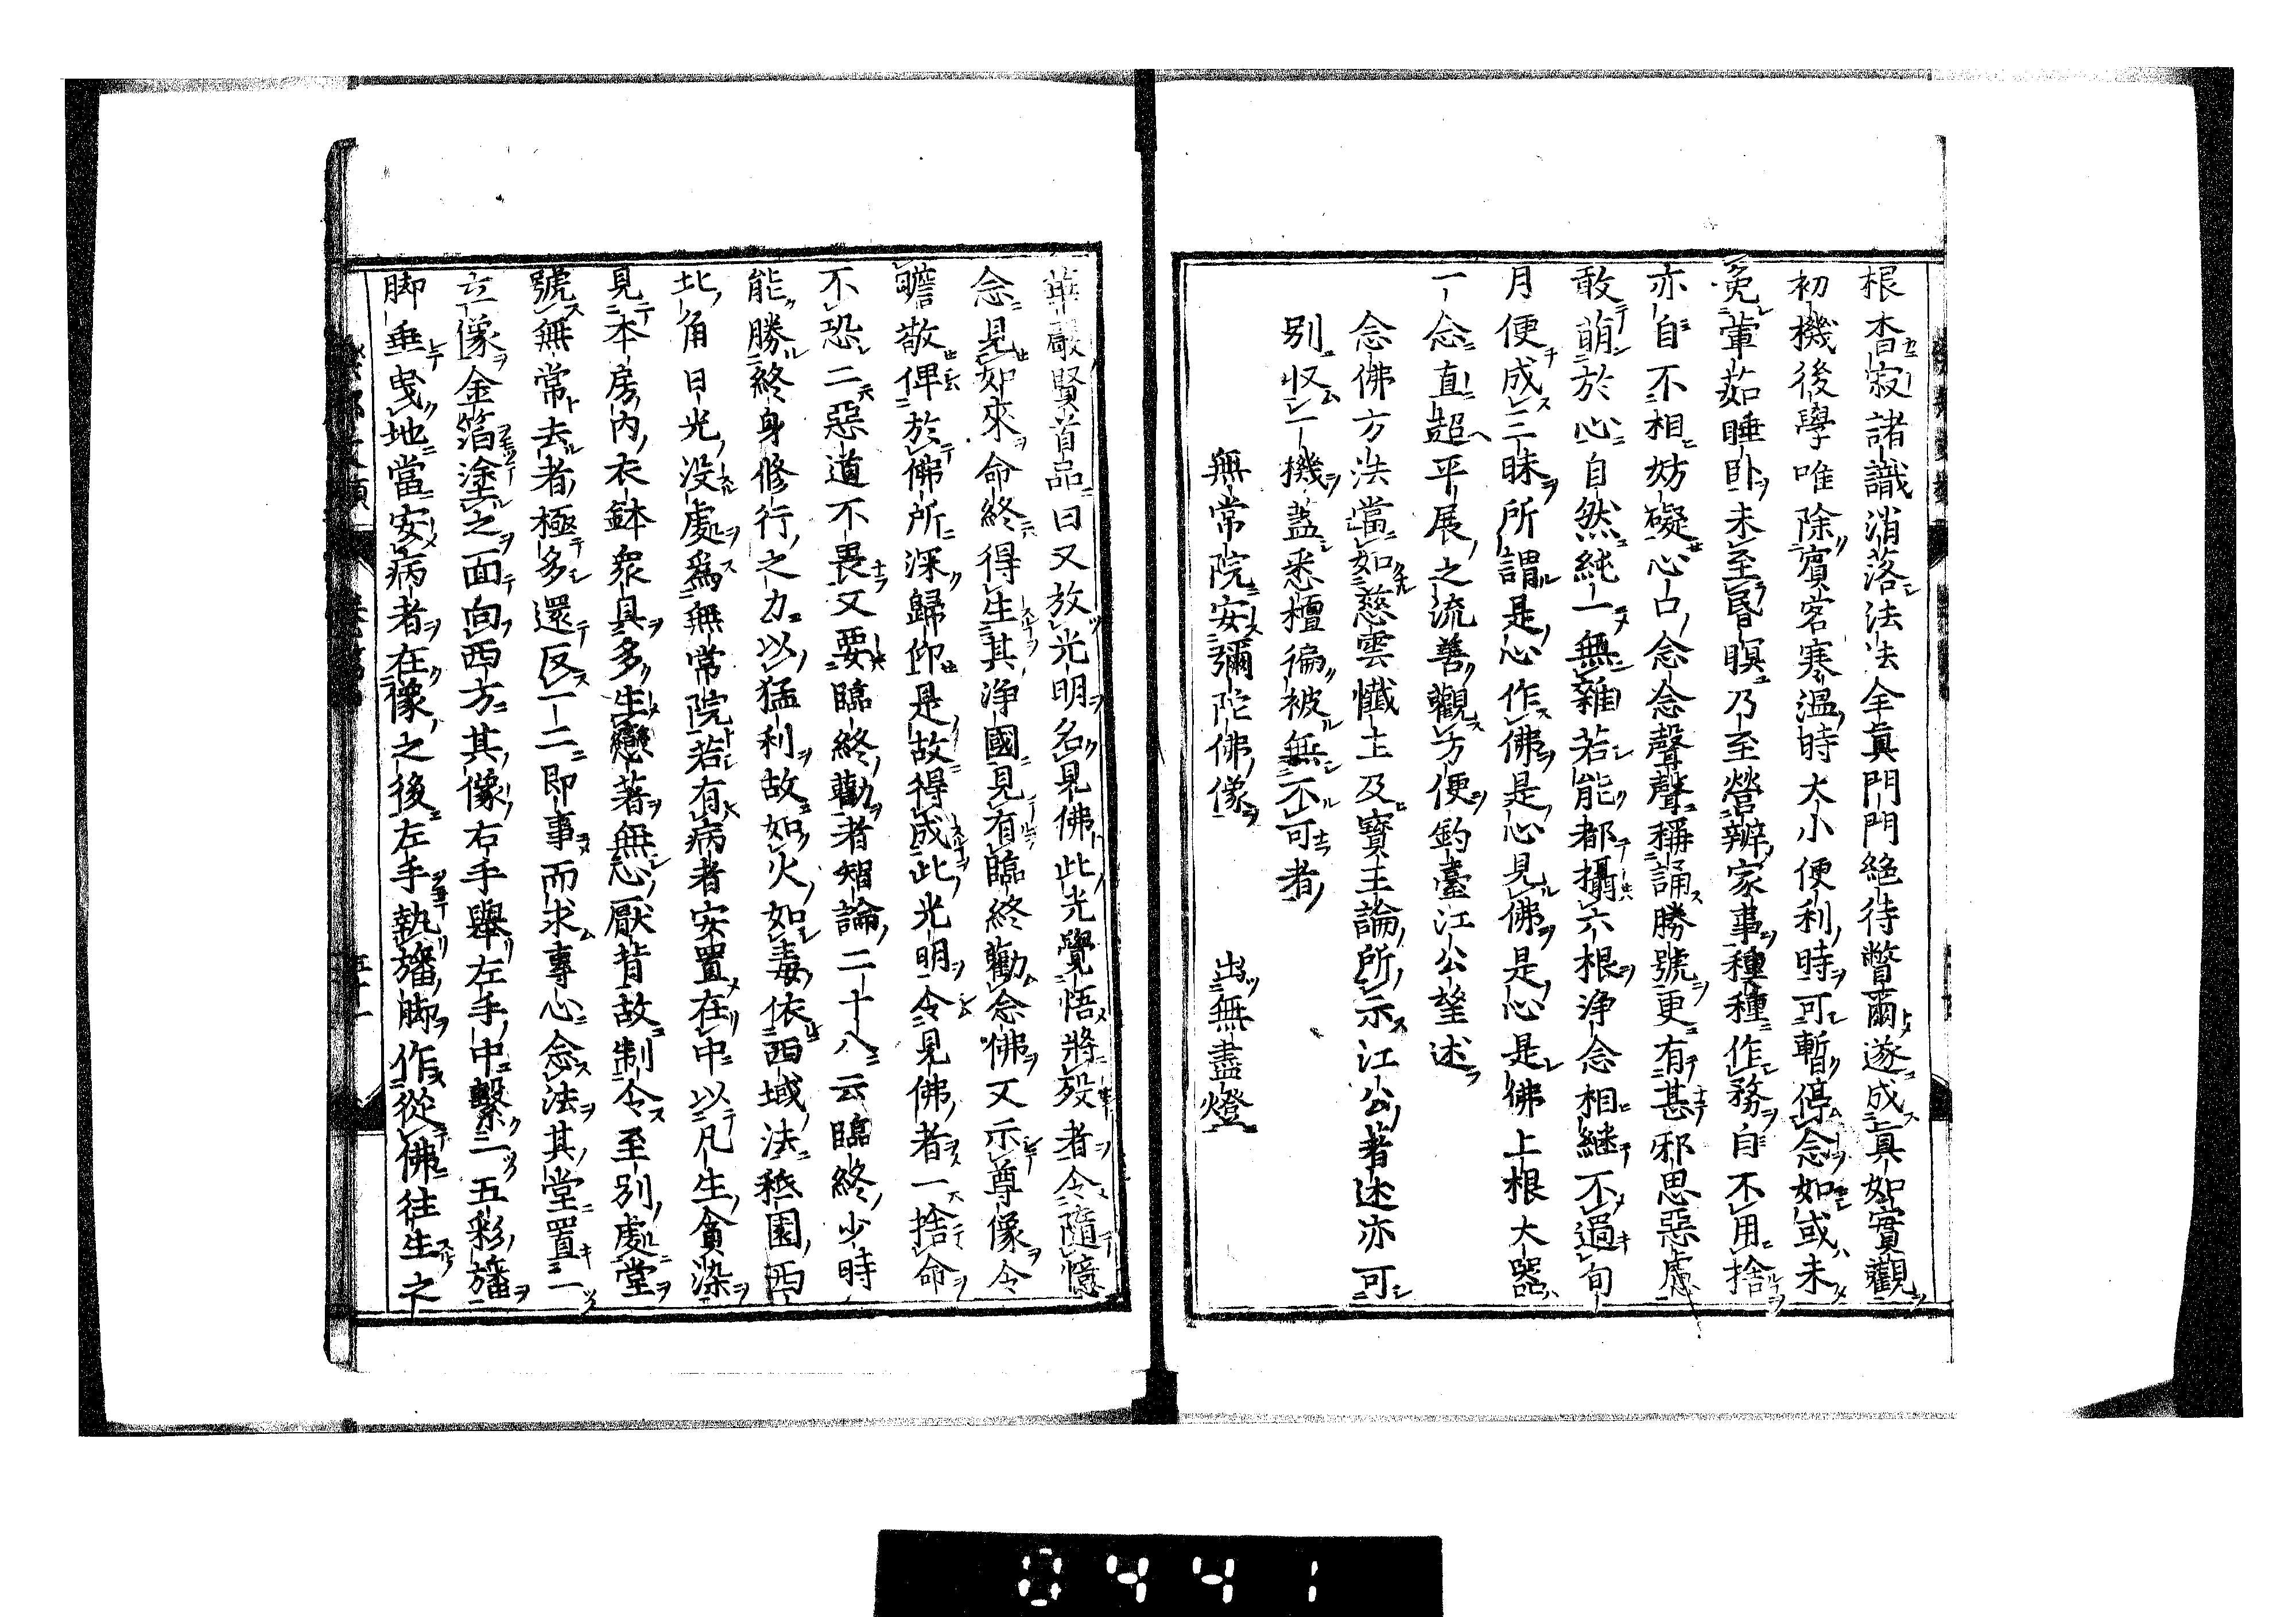 根杳寂諸識消落法法全眞門門絶待瞥爾遂成眞如實觀
初機後學唯除賓客寒温時大小便利時可暫停念如或未
免葷茹睡卧未至昏暝乃至營辦家事種種作務自不用捨
亦自不相妨礙心口念念聲聲稱誦勝號更有甚邪思惡慮
敢萌於心自然純一無雜若能都攝六根浄念相継不過旬
月便成三昧所謂是心作佛是心見佛是心是佛上根大器
一念直超平展之流善觀方便釣臺江公望述
念佛方法當如慈雲懺主及寶王論所示江公著述亦可
別収一機蓋悉檀徧被無不可者
無常院安彌陀佛像　出無盡燈
華嚴賢首品曰又放光明名見佛此光覺悟將歿者令隨憶
念見如來命終得生其浄國見有臨終勸念佛又示尊像令
瞻敬俾於佛所深歸仰是故得成此光明令見佛者一捨命
不恐二惡道不畏又要臨終勸者智論二十八云臨終少時
能勝終身修行之力以猛利故如火如毒依西域法秪園西
北角日光没處爲無常院若有病者安置在中以凡生貪染
見本房内衣鉢衆具多生戀著無心厭背故制令至別處堂
號無常去者極多還反一二即事而求專心念法其堂置一
立像金箔塗之面向西方其像右手舉左手中繫一五彩旛
脚垂曳地當安病者在像之後左手執旛脚作從佛往生之
0441